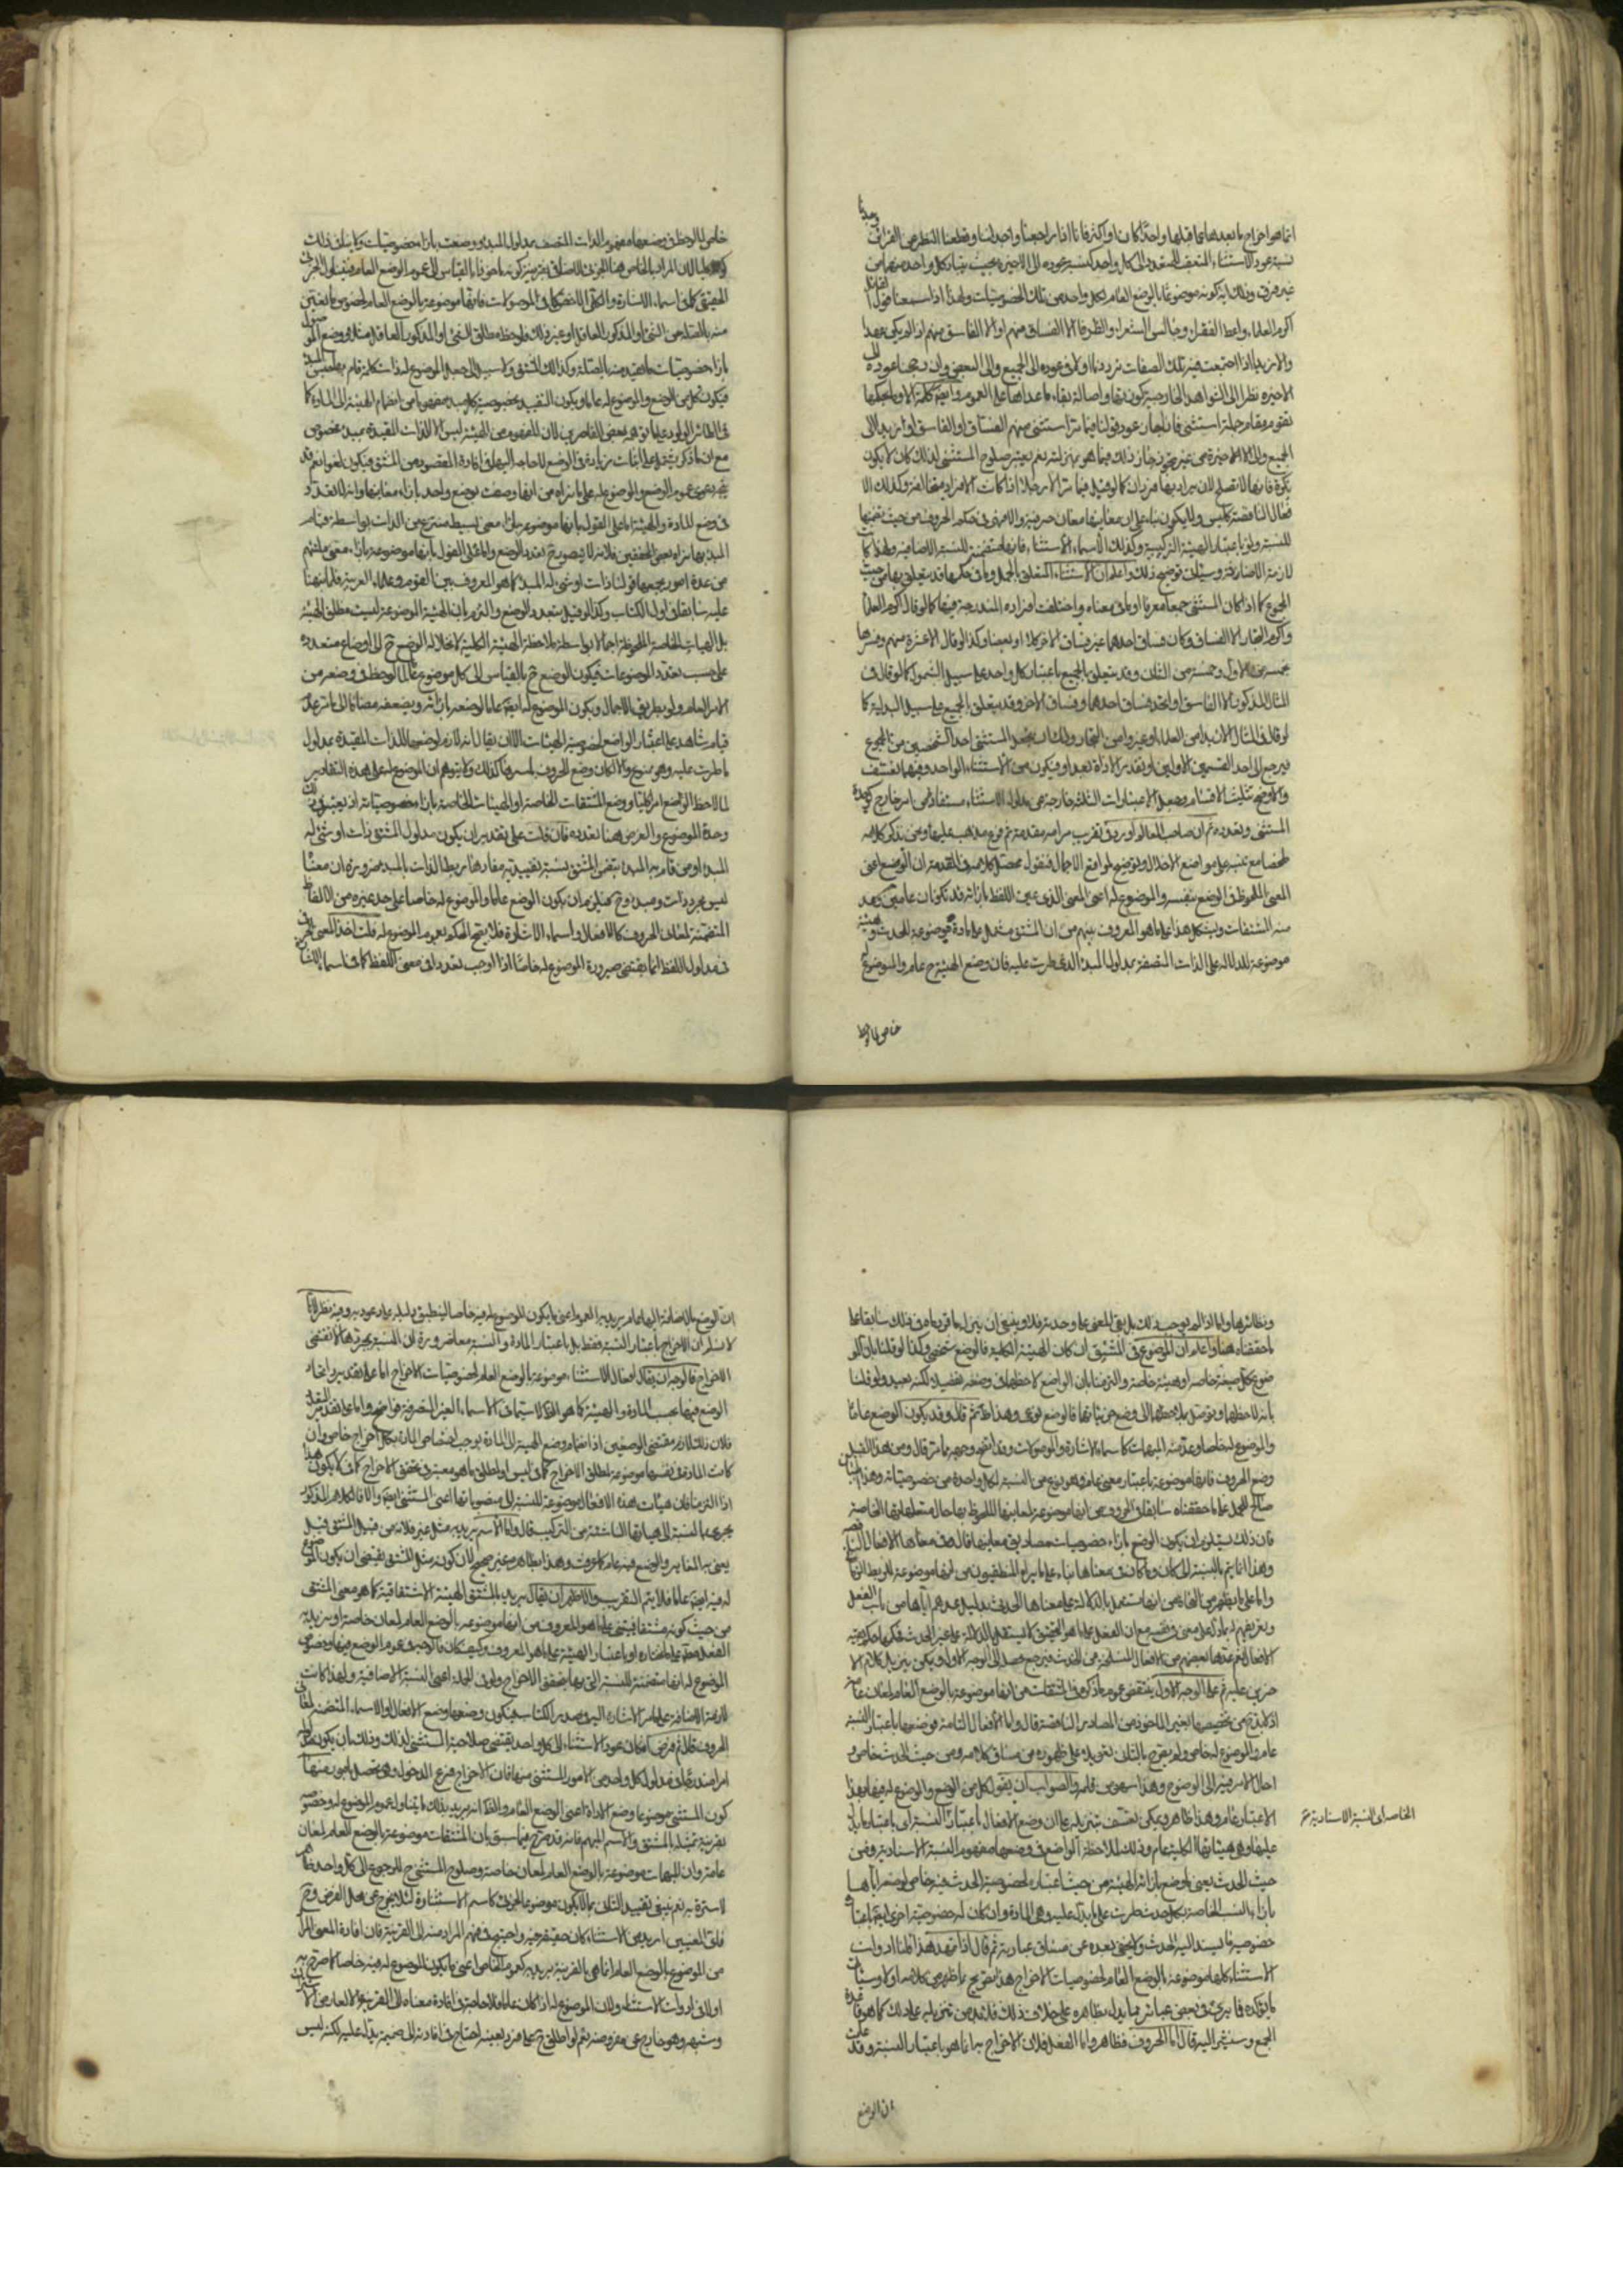 انما هو اخراج ما بعدها عما قبلها واحدا كان او اكثر فانا اذا راجعنا واحد لنا وقطعنا النظر عن القرائن وجدنا
نسبة عود الاستثناء المتعقب للمتعدد الى كل واحد كنسبة عوده الى الاخيرة بحيث يتبادر كل واحد منهما من
غير فرق وذلك اية كونه موضوعا بالوضع العام لكل واحد من تلك الخصوصيات ولهذا اذا سمعنا قول القائل
اكرم العلماء واعط الفقراء وجالس الشعراء والظرفاء الا الفساق منهم او الا الفاسق منهم اذا لم يكن عهد
والا زيدا اذا اجتمعت فيه تلك الصفات ترددنا اولا في عوده الى الجميع والى البعض وان رجحنا عوده الى
الاخيرة نظرا الى الشواهد الخارجية ككون بقاء واصالة بقاء ما عداها على العموم وايضا كلمة الا وما بحكمها
تقوم مقام جملة استثنى فانا نجد جواز عود قولنا فيما مر استثنى منهم الفساق او الفاسق او زيدا الى
الجميع والى الاخيرة من غير تجوز جاز ذلك فيما هو بمنزلته نعم يعتبر صلوح المستثنى لذلك كان لا يكون
نكرة فانها لا تصلح لان يراد بها فردان كما لو قيل فيما مر الا رجلا اذا كانت الافراد متغايرة وكذلك الا
فعال الناقصة كليس ولا يكون بناء على ان معانيها معان حرفية والا فهي في حكم الحروف من حيث تضمنها
للنسبة ولو باعتبار الهيئة التركيبية وكذلك الاسماء الاستثناء فانها متضمنة للنسبة الاضافية ولهذا كانت
لازمة الاضافة وسيأتي توضيح ذلك واعلم ان الاستثناء المتعلق بالجمل وما في حكمها قد يتعلق بها من حيث
المجموع كما اذا كان المستثنى جمعا معرفا او ما في معناه واختلفت افراده المندرجة فيها كما لو قال اكرم العلماء
واكرم التجار الا الفساق وكان فساق احدهما غير فساق الاخر كلا او بعضا وكذا لو قال الا عشرة منهم وفسرها
بخمسة من الاول وخمسة من الثاني وقد يتعلق بالجميع باعتبار كل واحد على سبيل الشمول كما لو قال في
المثال المذكور الا الفاسق او اتحد فساق احدهما وفساق الاخر وقد يتعلق بالجميع على سبيل البدلية كما
لو قال في المثال الا زيدا من العلماء او عمروا من التجار
فيرجع الى احد القسمين الاولين او تقدير الاداة بعد او فيكون من الاستثناء الواحد وفيهما تعسف
والاوضح تثليث الاقسام وجعل الاعتبارات الثلثة خارجة عن مدلول الاستثناء مستفادا من امر خارج كوحدة
المستثنى وتعدده ثم ان صاحب المعالم اورد في تقريب مرامه مقدمة ثم فرع مذهبه عليها ونحن نذكر كلامه
ملخصا مع تنبيه على مواضع الاخلال وتوضيح لمواقع الاجمال فنقول محصل كلامه في المقدمة ان الوضع اعني
المعنى الملحوظ في الوضع بنفسه والموضوع له اعني المعنى الذي عين اللفظ بازائه قد يكونان عامين وعد
منه المشتقات ويشكل هذا على ما هو المعروف بينهم من ان المشتق مشتمل على مادة موضوعة للحدث وهيئة
موضوعة للدلالة على الذات المتصفة بمدلول المبدء الذي طرت عليه فان وضع الهيئة ح عام والموضوع له
خاص لا لوحظ
خاص لا لوحظ في وضعها مفهوم الذات المتصف بمدلول المبدء ووضعت بازاء خصوصيات ولا ينافي ذلك
كونه كليا لان المراد بالخاص هنا الجزئي الاضافي بقرينة كونه ماخوذا بالقياس الى عموم الوضع العام فيتناول الجزئي
الحقيقي كما في اسماء الاشارة والكلي الاخص كما في الموصولات فانها موضوعة بالوضع العام لخصوص ما يتعين
منه بالصلة من الشئ او المذكور العاقل او غير ذلك فلوحظ مطلق الشئ او المذكور العاقل مثلا في وضع الموصول
بازاء خصوصياته المتقيدة منه بالصلة وكذا المشتق ولا سبيل الى جعل الموضوع له ذات كلية قام بها المبدء
فيكون كل من الوضع والموضوع له عاما ويكون التقييد بخصوصية كل مبدء مفهوما من انضمام الهيئة الى المادة كما
في الطائر الولود على ما توهمه بعض القاصرين لان المفهوم من الهيئة ليس الا الذات المقيدة بمبدء مخصوص
مع ان ما ذكر يشتمل على اثبات زيادة في الوضع لا حاجة اليها في افادة المقصود من المشتق فيكون لغوا نعم قد
يتجه دعوى عموم الوضع والموضوع له على ما نراه من انها وضعت بوضع واحد بازاء معانيها وانه لا تعدد
في وضع المادة والهيئة اما على القول بانها موضوعة بازاء معنى بسيط منتزع من الذات بواسطة قيام
المبدء بها يراه بعض المحققين فلانه لا يتصور ح تعدد الوضع واما على القول بانها موضوعة بازاء معنى ملتئم
من عدة امور يجمعها قولنا ذات او شئ له المبدء كما هو المعروف بين القوم وعلماء العربية فلما نبهنا
عليه سابقا في اول الكتاب وكذا لو قيل بتعدد الوضع والتزم بان الهيئة الموضوعة ليست مطلق الهيئة
بل الهيئات الخاصة الملحوظة اجمالا بواسطة ملاحظة الهيئة الكلية لانحلال الوضع ح الى اوضاع متعددة
على حسب تعدد الموضوعات فيكون الوضع ح بالقياس الى كل موضوع عاما لوحظ في وضعه من
الامر العام ولو بطريق الاجمال ويكون الموضوع له ايضا عاما لوضعه بازائه وبضعفه مضافا الى ما مر عدم
قيام شاهد على اعتبار الواضع لخصوصية الهيئات الا ان يقال انه لازم لوضعها للذات المقيدة بمدلول
ما طرت عليه وهو ممنوع والا لكان وضع الحروف باسرها كذلك ولا يتوهم ان الموضوع له على هذه التقادير
لما لاحظ الواضع امرا كليا ووضع المشتقات الخاصة او الهيئات الخاصة بازاء خصوصياته اذ يعتبر في ذلك
وحدة الموضوع والغرض هنا تعدده فان قلت على تقدير ان يكون مدلول المشتق ذات او شئ له
المبدء او من قام به المبدء يتضمن المشتق نسبة تقييدية مفادها ربط الذات بالمبدء ضرورة ان معناه
ليس مجرد ذات ومبدء وح فيلزم ان يكون الوضع عاما والموضوع له خاصا على حد غيره من الالفاظ
المتضمنة لمعاني الحروف كالافعال واسماء الاشارة فلا يتجه الحكم بعموم الموضوع له قلت اخذ المعنى الحرفي
في مدلول اللفظ انما يقتضي صيرورة الموضوع له خاصا اذا اوجب تعددا في معنى اللفظ كما في اسماء الاشارة
ونظائرها واما اذا لم يوجب ذلك بل بقي المعنى على وحدته فلا وينبغي ان ينزل ما قررناه في ذلك سابقا على
ما حققناه هنا واعلم ان الموضوع في المشتق ان كان الهيئة الكلية فالوضع شخصي وكذا لو قلنا بان المو
ضوع كل صيغة خاصة او هيئة خاصة والتزمنا بان الواضع لاحظها في وضعه تفصيلا لكنه بعيد ولو قلنا
بانه لاحظها وتوصل بملاحظتها الى وضع جزئياتها فالوضع نوعي وهذا ظ ثم قال وقد يكون الوضع عاما
والموضوع له خاصا وعد منه المبهمات كاسماء الاشارة والموصولات وقد اتضح وجهه مما مر قال ومن هذا القبيل
وضع الحروف فانها موضوعة باعتبار معنى عام وهو نوع من النسبة لكل واحدة من خصوصياته وهذا
صالح للحمل على ما حققناه سابقا في الحروف من انها موضوعة لمعانيها الملحوظ بها حال متعلقاتها الخاصة
فان ذلك يستلزم ان يكون الوضع بازاء خصوصيات مصاديق معانيها قال وفي معناها الافعال الناقصة
وهذا انما يتم بالنسبة الى كان وما كان في معناها بناء على ما يراه المنطقيون من انها موضوعة للربط الزماني
واما على ما يظهر من النحاة من انها تستعمل بالدلالة على معناها الحدث بدليل عدهم اياها من باب الفعل
وتعريفهم له بما دل على معنى في نفسه مع ان الفعل على ما هو التحقيق لا يستقل بالدلالة على غير الحدث فحكمها حكم بقية
الافعال نعم عدها بعضهم من الافعال المنسلخة عن الحدث فيرجع حصله الى الوجه الاول ويمكن تنزيل كلام الا
خرين عليه ثم على الوجه الاول ينتقض عموم ما ذكره في المشتقات من انها موضوعة بالوضع العام لمعان عامة
اذ لا بد ح من تخصيصها بغير الماخوذ من المصادر الناقصة قال واما الافعال التامة فوضعها باعتبار النسبة
عام والموضوع له خاص ولم يصرح بالثاني تعويلا على ظهوره من مساق كلامه ومن حيث الحدث خاص و
احال الامر فيه الى الوضوح وهذا سهو من قلمه والصواب ان يقول كل من الوضع والموضوع له فيها بهذا
الاعتبار عام وهذا ظاهر ويمكن بتعسف تنزيله على ان وضع الافعال باعتبار النسبة اي باعتبار ما يدل
الخاصة اي النسبة الاسنادية صح
عليها وهي هيئاتها الكلية عام وذلك لملاحظة الواضع في وضعها مفهوم النسبة الاسنادية ومن
حيث الحدث يعني لا وضع بازائه الهيئة من حيث اعتباره لخصوصية الحدث فيه خاص لوضعه اياها
بازاء النسب الخاصة بكل حدث طرت على ما يدل عليه وهي المادة وان كان له خصوصية اخرى ايضا باعتبار
خصوصية ما يسند اليه الحدث ولا يخفى بعده عن مساق عبارته ثم قال اذا تمهد هذا قلنا ادوات
الاستثناء كلها موضوعة بالوضع العام لخصوصيات الاخراج هذا تصريح بما ظهر من كلامه اولا وسيأتي
ما يؤكده فما يرى في بعض عبائره مما يدل بظاهره على خلاف ذلك فلا بد من تنزيله على ذلك كما هو قاعدة
الجمع وسنشير اليه قال اما الحروف فظاهر واما الفعل فلان الاخراج به انما هو باعتبار النسبة وقد علمت
ان الوضع
ان الوضع بالاضافة اليها عام يريد به العموم اعني ما يكون الموضوع له فيه خاصا لينطبق دليله على دعويه وفيه نظر لانا
لا نسلم ان الاخراج باعتبار النسبة فقط بل باعتبار المادة والنسبة معا ضرورة ان النسبة بمجردها لا تقتضي
الاخراج فالوجه ان يقال افعال الاستثناء موضوعة بالوضع العام لخصوصيات الاخراج اما على تقدير اتحاد
الوضع فيها بحسب المادة والهيئة كما هو الظ لا سيما في الاسماء الغير المتصرفة فواضح واما على تقدير التعدد
فلان ذلك لازم مقتضى الوضعين اذ انضمام وضع الهيئة الى المادة يوجب اختصاص المادة بكل اخراج خاص وان
كانت المادة في نفسها موضوعة لمطلق الاخراج كما في ليس او لمطلق ما هو معتبر في تحقق الاخراج كما في لا يكون هذا
اذا التزمنا بان هيئات هذه الافعال موضوعة للنسبة الى منصوباتها اعني المستثنى ايضا والا فالكلام المذكور
يجري بالنسبة الى هيئاتها الناشئة من التركيب قال واما الاسم يريد به مثل غير فلانه من قبيل المشتق قيل
يعني به المغاير والوضع فيه عام كما عرفت وهذا بظاهره غير صحيح لان كونه مثل المشتق يقتضي ان يكون الموضوع
له فيه ايضا عاما فلا يتم التقريب والاظهر ان يقال يريد بالمشتق الهيئة الاشتقاقية كما هو معنى المشتق
من حيث كونه مشتقا فيبتني على ما هو المعروف من انها موضوعة بالوضع العام لمعان خاصة او يريد به
الفعل معتمدا على ما اختاره او باعتبار الهيئة على ما هو المعروف وكيف كان فالوجه في عموم الوضع فيها وخصوص
الموضوع له انها متضمنة للنسبة التي بها يتحقق الاخراج ولو في الجملة اعني النسبة الاضافية ولهذا كانت
لازمة الاضافة على ما مر الاشارة اليه في صدر الكتاب فيكون وضعها وضع الافعال والاسماء المتضمنة لمعاني
الحروف قال ثم فرض امكان عود الاستثناء الى كل واحد يقتضي صلاحية المستثنى لذلك وذلك بان يكون
امرا مندرجا في مدلول كل واحد من الامور المستثنى منها فان الاخراج فرع الدخول وهي تحصل بامور منها
كون المستثنى موضوعا وضع الاداة اعني الوضع العام والظ انه يريد بذلك ما يتناول عموم الموضوع له وخصوصه
بقرينة تمثيله بالمشتق والاسم المبهم فانه قد صرح فيما سبق بان المشتقات موضوعة بالوضع العام لمعان
عامة وان المبهمات موضوعة بالوضع العام لمعان خاصة وصلوح المستثنى ح للرجوع الى كل واحد ظاهر
لا سترة به نعم ينبغي تقييد الثاني بما لا يكون موضوعا لجزئي كاسم الاشارة لئلا يخرج عن محل الفرض وح
فاي المعنيين اريد من الاستثناء كان حقيقة فيه واحتيج في فهم المراد منه الى القرينة فان افادة المعنى المراد
من الموضوع بالوضع العام انما هي بالقرينة يريد به العموم الخاص اعني ما يكون الموضوع له فيه خاصا كما صرح به
اولا في ادوات الاستثناء ولان الموضوع له اذا كان عاما فلا حاجة في افادة معناه الى القرينة الا لعارض الاشتراك
وشبهه وهو خارج عن مفروضه ثم لو اطلق ح على فرد بعينه احتاج في افادته الى ضميمة يدل عليه لكنه ليس